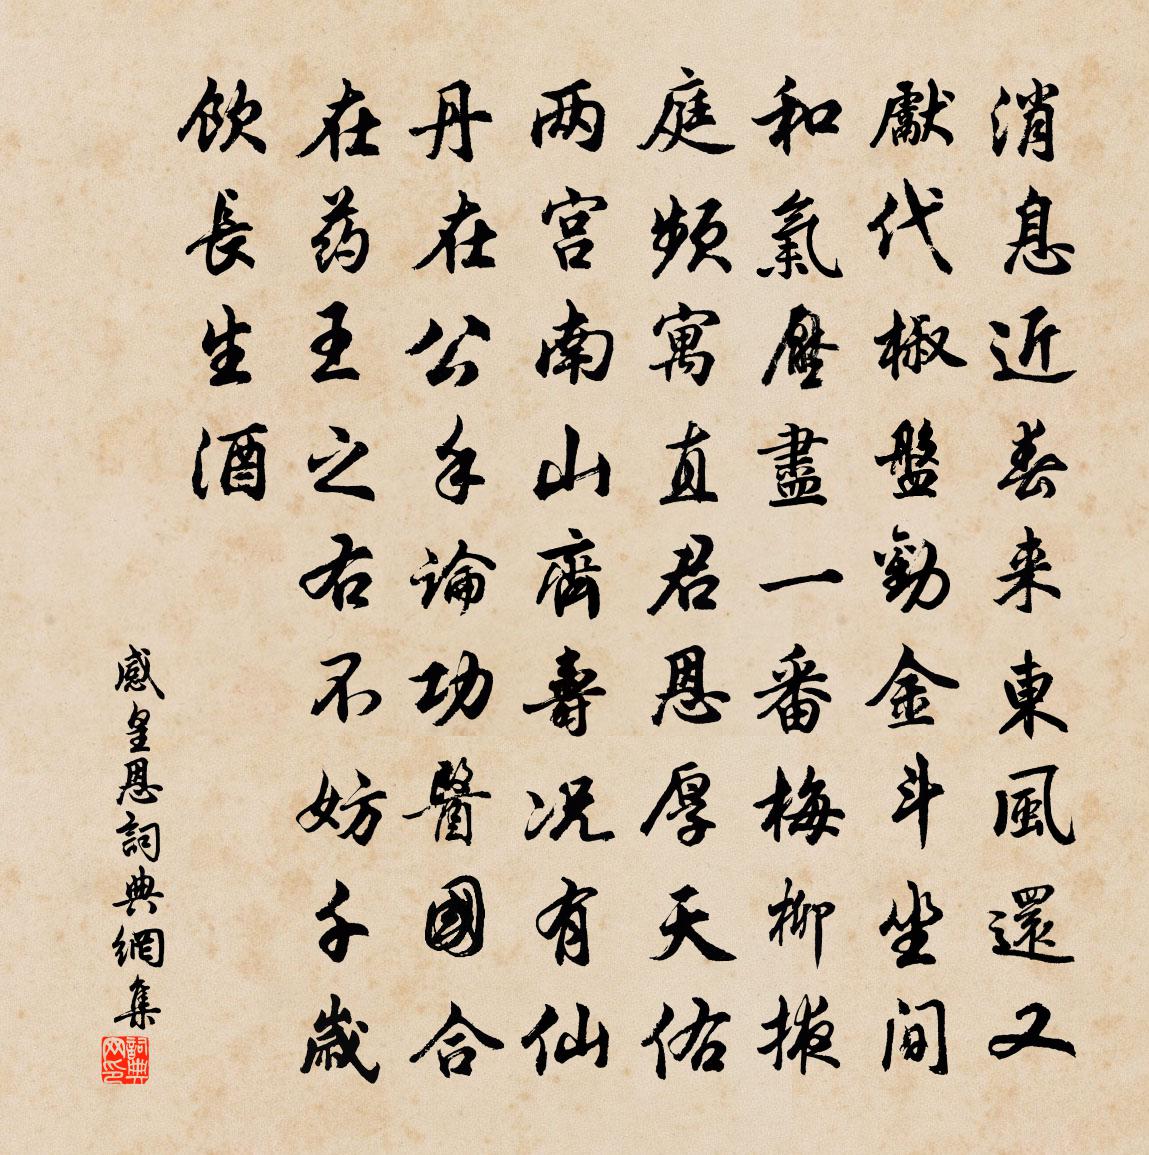 消息近春来東風還又
獻代椒盤勸金斗坐間
和氣壓盡一番梅柳掖
庭頻寓直君恩厚天佑
两宫南山齊壽况有仙
丹在公手論功醫國合
在药王之右不妨千歲
飲長生酒
感皇恩詞典網集
詞典网印